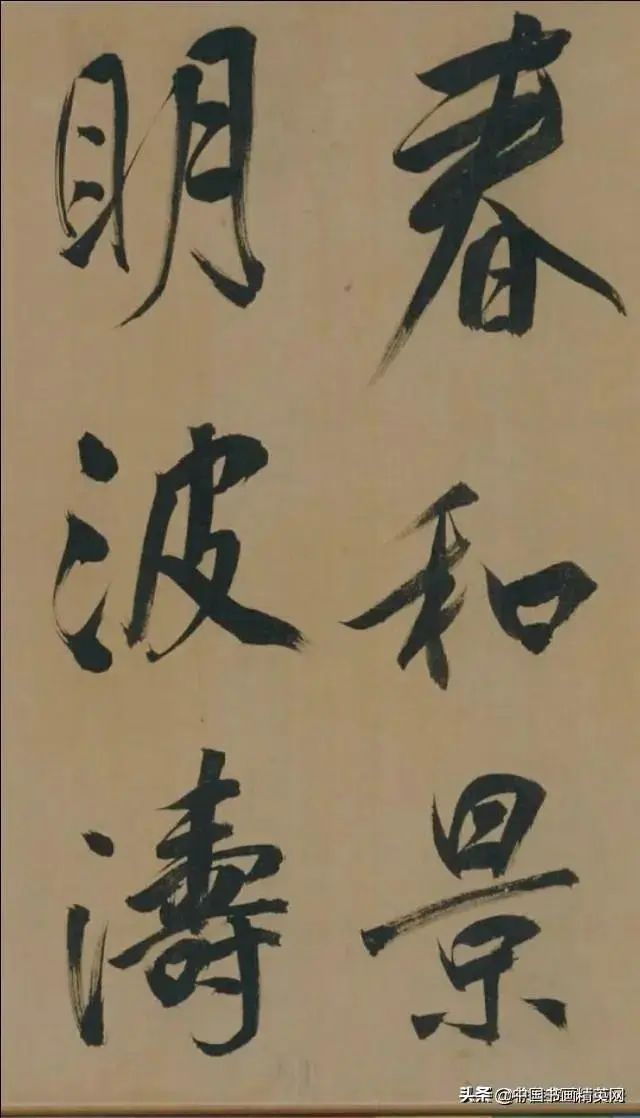 春和景
明波濤
头条 @中国书画精英网